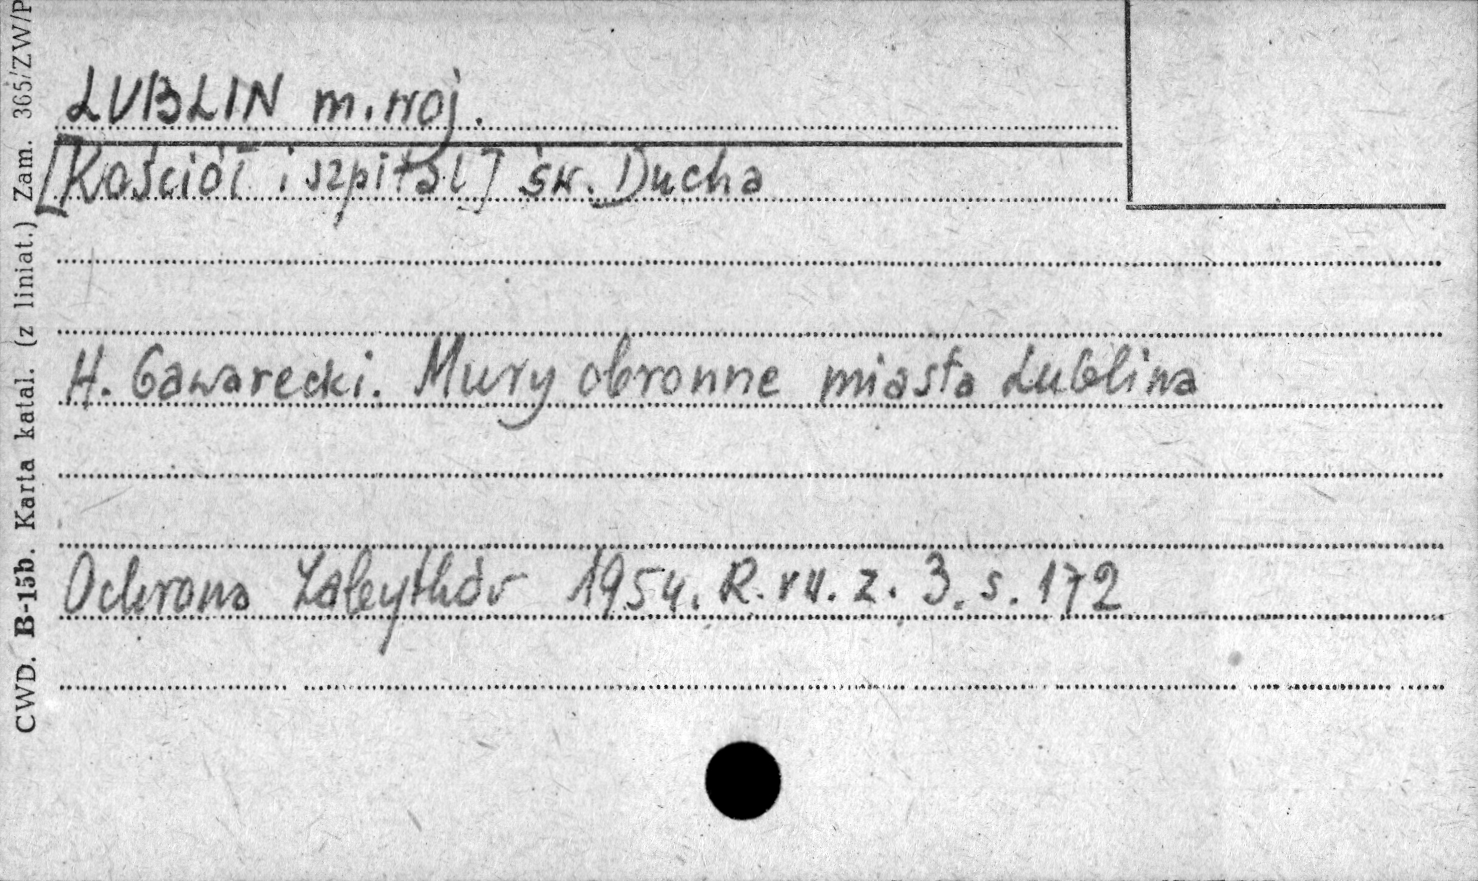 LUBLIN m. woj.
[Kościół i szpital] św. Ducha
H. Gawarecki. Mury obronne miasta Lublina
Ochrona Zabytków 1954. R. VII. z. 3. s. 172
CWD. B-15b. Karta katal. (z liniat.) Zam. 365/ZW/P